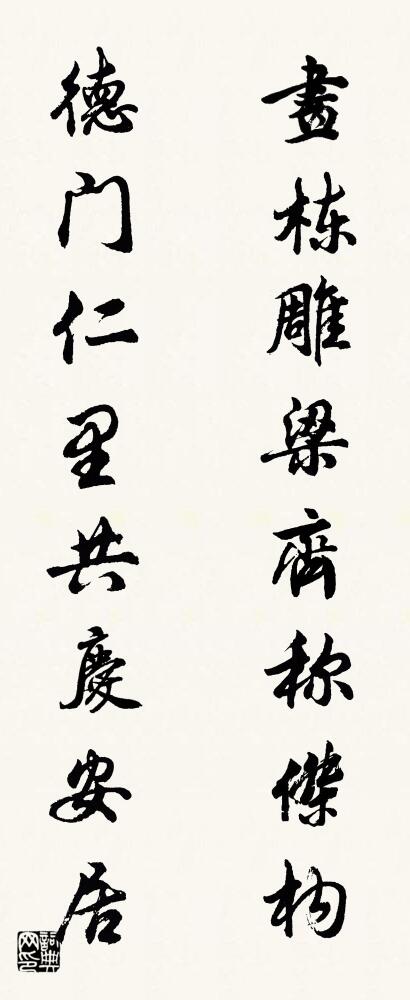 畫栋雕梁齊称傑构
德门仁里共慶安居